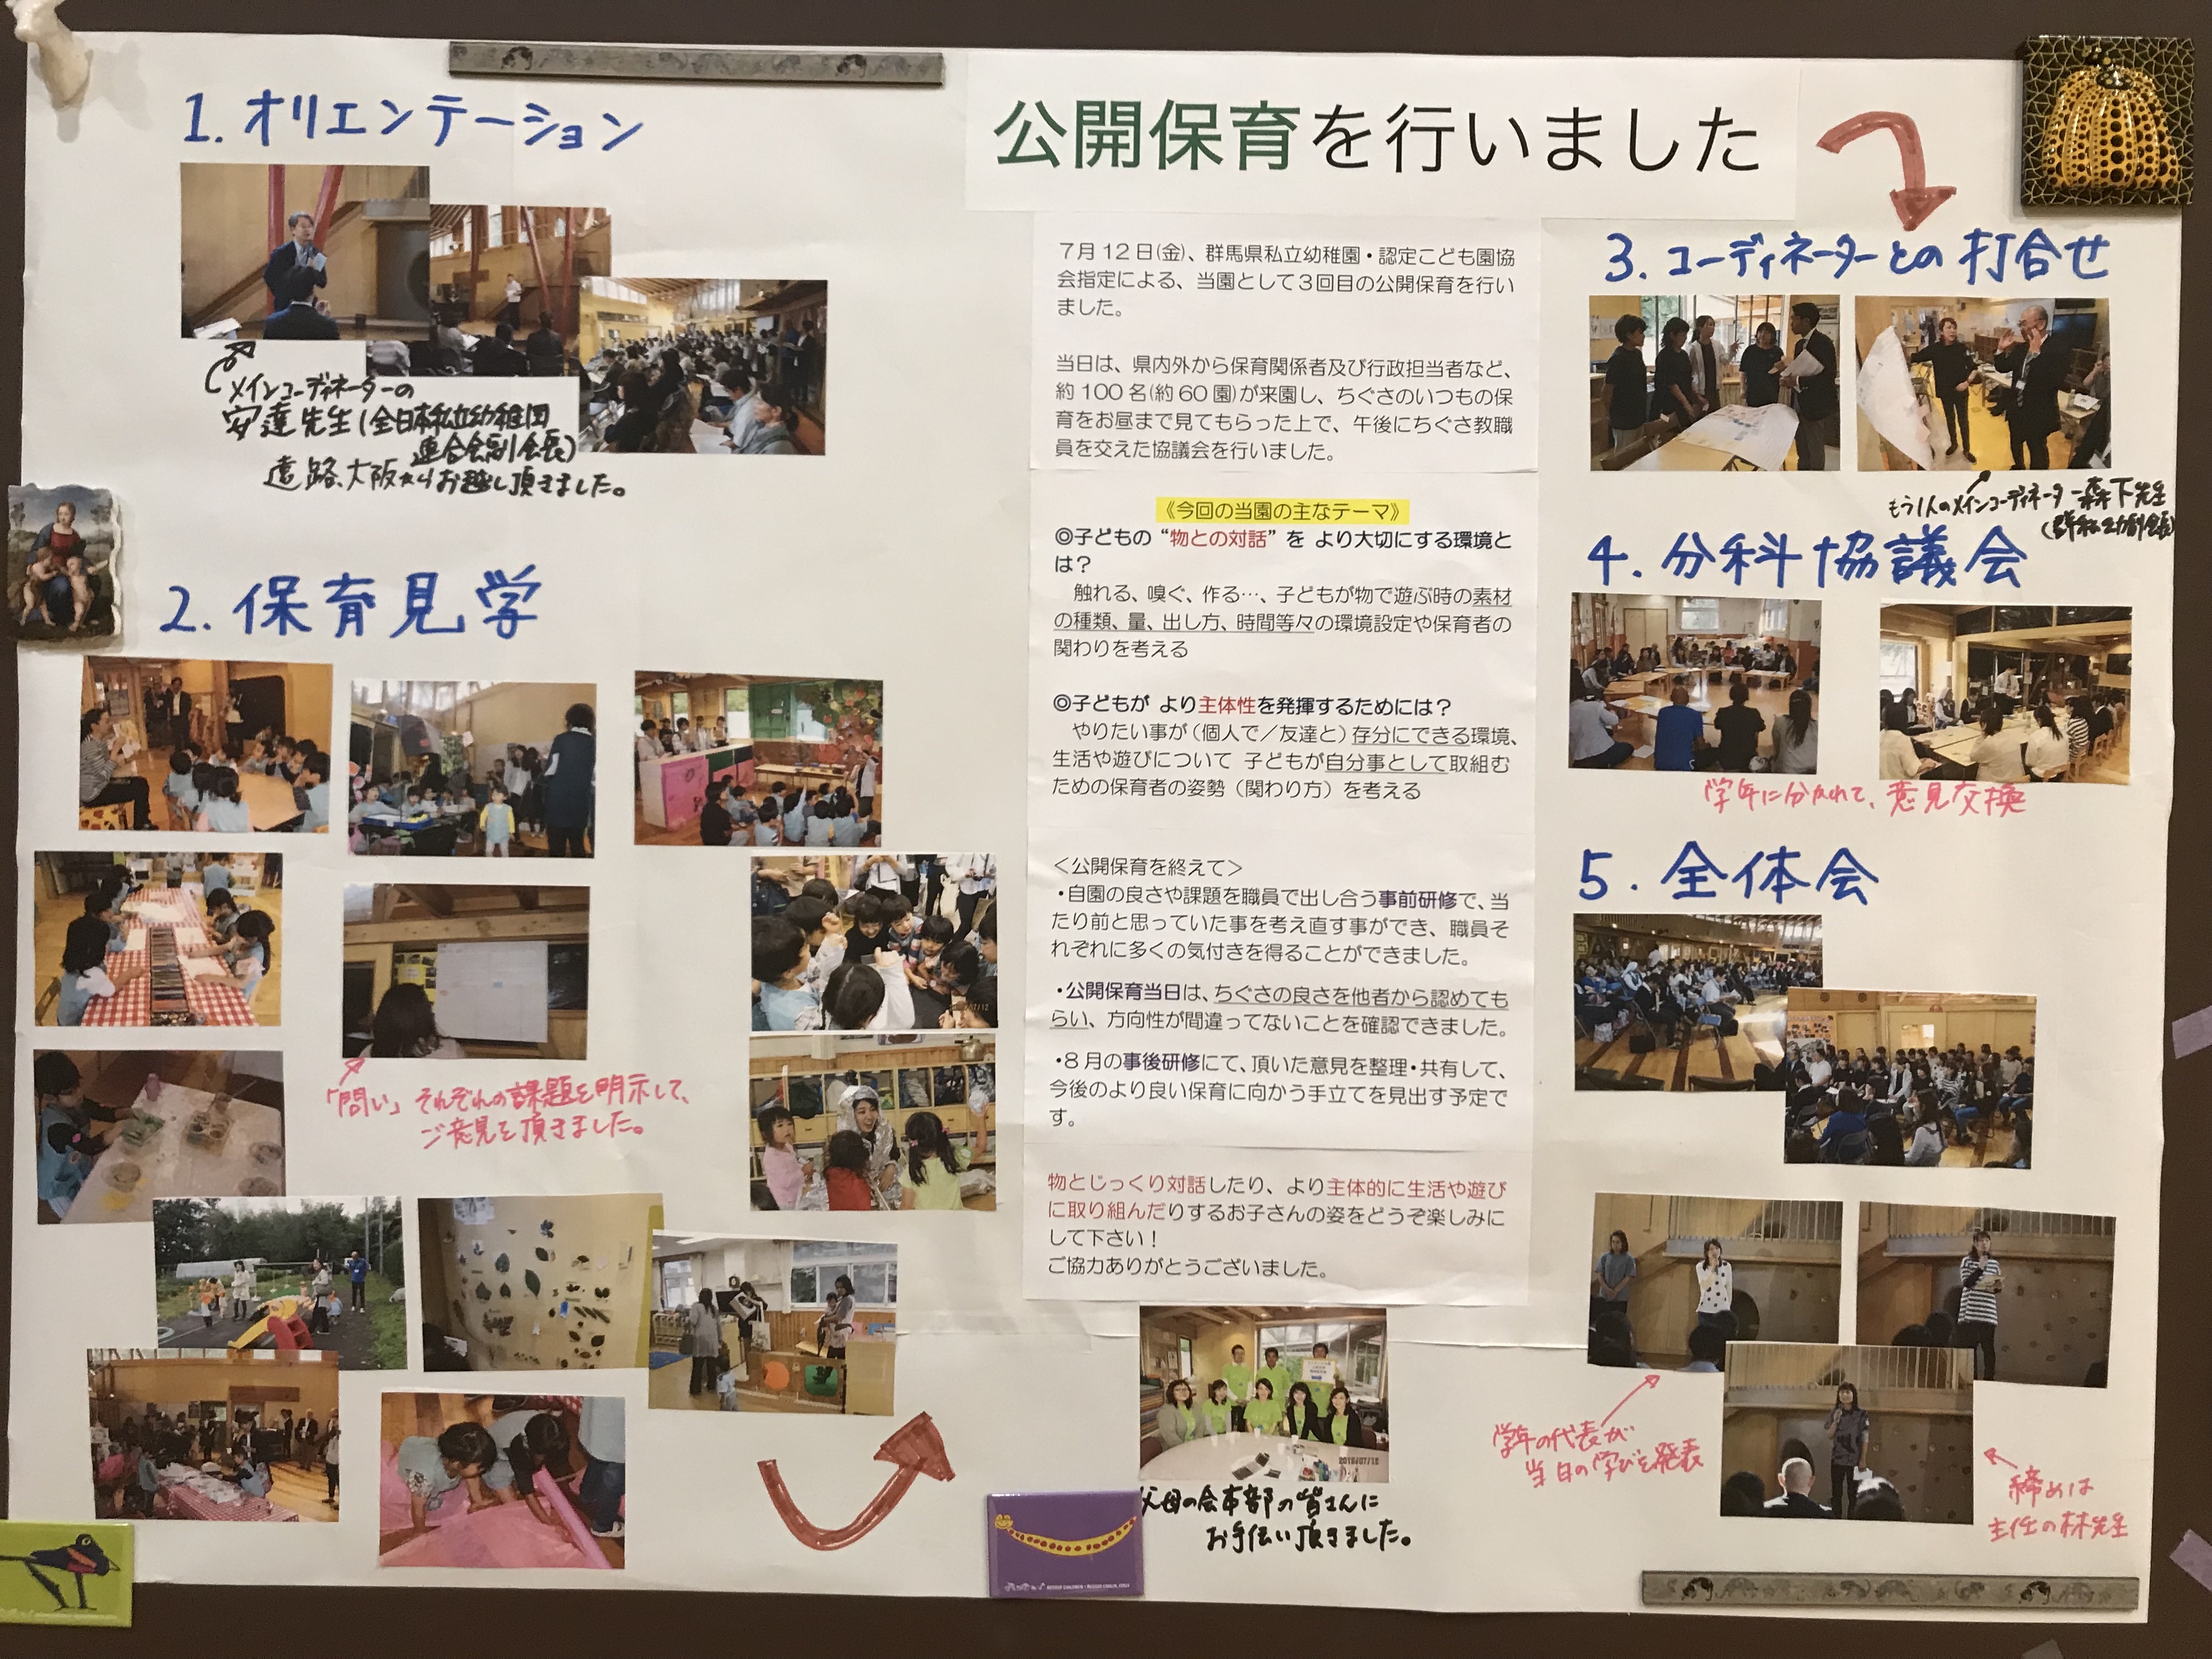 公開保育を行いました
1. オリエンテーション
メインコーディネーターの
安達先生(全日本私立幼稚園
連合会副会長)
遠路、大阪からお越し頂きました。
2. 保育見学
「問い」それぞれの課題を明示して、
ご意見を頂きました。
7月12日(金)、群馬県私立幼稚園・認定こども園協
会指定による、当園として3回目の公開保育を行い
ました。
当日は、県内外から保育関係者及び行政担当者など、
約100名(約60園)が来園し、ちぐさのいつもの保
育をお昼まで見てもらった上で、午後にちぐさ教職
員を交えた協議会を行いました。
《今回の当園の主なテーマ》
◎子どもの “物との対話” を より大切にする環境と
は?
触れる、嗅ぐ、作る…、子どもが物で遊ぶ時の素材
の種類、量、出し方、時間等々の環境設定や保育者の
関わりを考える
◎子どもが より主体性を発揮するためには?
やりたい事が(個人で/友達と)存分にできる環境、
生活や遊びについて 子どもが自分事として取組む
ための保育者の姿勢(関わり方)を考える
<公開保育を終えて>
・自園の良さや課題を職員で出し合う事前研修で、当
たり前と思っていた事を考え直す事ができ、職員そ
れぞれに多くの気付きを得ることができました。
・公開保育当日は、ちぐさの良さを他者から認めても
らい、方向性が間違ってないことを確認できました。
・8月の事後研修にて、頂いた意見を整理・共有して、
今後のより良い保育に向かう手立てを見出す予定で
す。
物とじっくり対話したり、より主体的に生活や遊び
に取り組んだりするお子さんの姿をどうぞ楽しみに
して下さい!
ご協力ありがとうございました。
父母の会本部の皆さんに
お手伝い頂きました。
3. コーディネーターとの打合せ
もう1人のメインコーディネーター森下先生
(群私幼副会長)
4. 分科協議会
学年に分かれて、意見交換
5. 全体会
学年の代表が
当日の学びを発表
締めは
主任の林先生